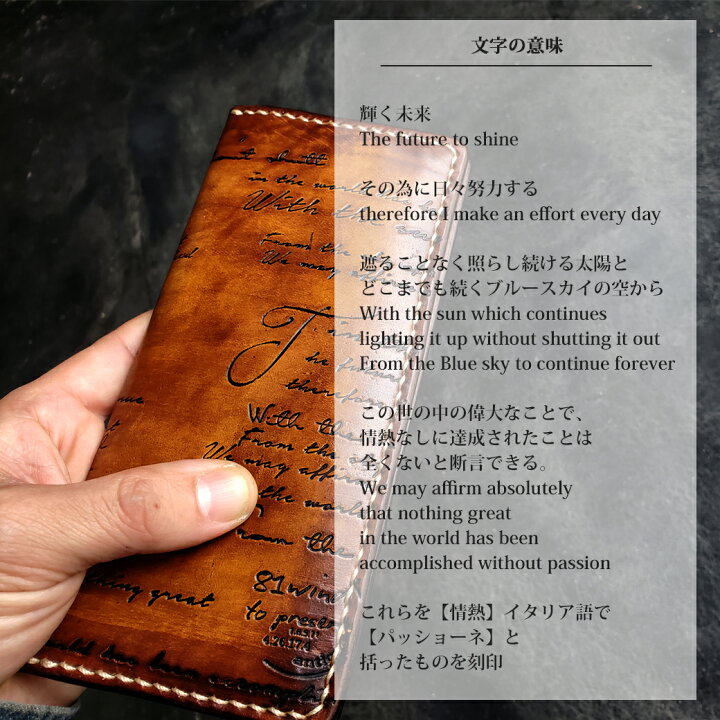 文字の意味
輝く未来
The future to shine
その為に日々努力する
therefore I make an effort every day
遮ることなく照らし続ける太陽と
どこまでも続くブルースカイの空から
With the sun which continues
lighting it up without shutting it out
From the Blue sky to continue forever
この世の中の偉大なことで、
情熱なしに達成されたことは
全くないと断言できる。
We may affirm absolutely
that nothing great
in the world has been
accomplished without passion
これらを【情熱】イタリア語で
【パッショーネ】と
括ったものを刻印
in the world
With the
From the
We may affirm
therefore
With the
From the
We may affir
the world
From the
thing great
81
to prese